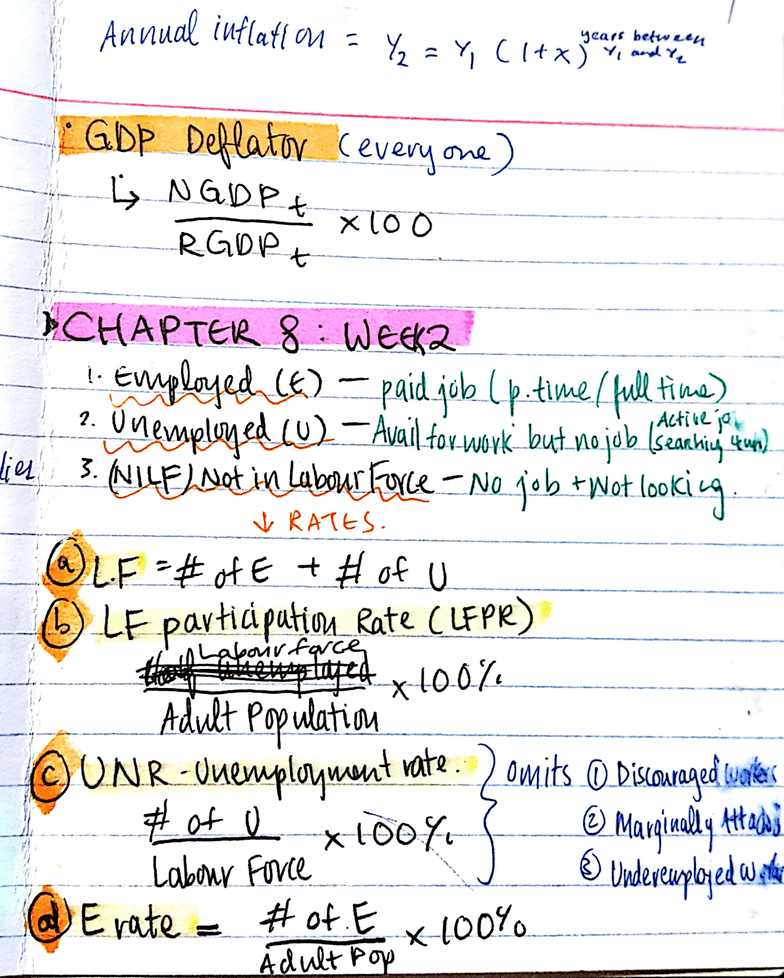 Annual inflation = Y₂ = Y₁ (1+x) years between Y₁ and Y₂
· GDP Deflator (everyone)
↳ NGDP t
RGDP t
× 100
CHAPTER 8 : WEEK2
1. Employed (E) — paid job (p.time/full time)
2. Unemployed (U) — Avail for work but no job (Active
3. (NILF) Not in Labour Force — No job + Not looking.
↓ RATES.
(a) LF = # of E + # of U
(b) LF participation Rate (LFPR)
Labour force
Adult Population
× 100%
(c) UNR - Unemployment rate. } omits ① Discouraged workers
# of U
Labour Force
× 100%
② Marginally
③ Underemployed
(d) E rate = # of E
Adult Pop
× 100%